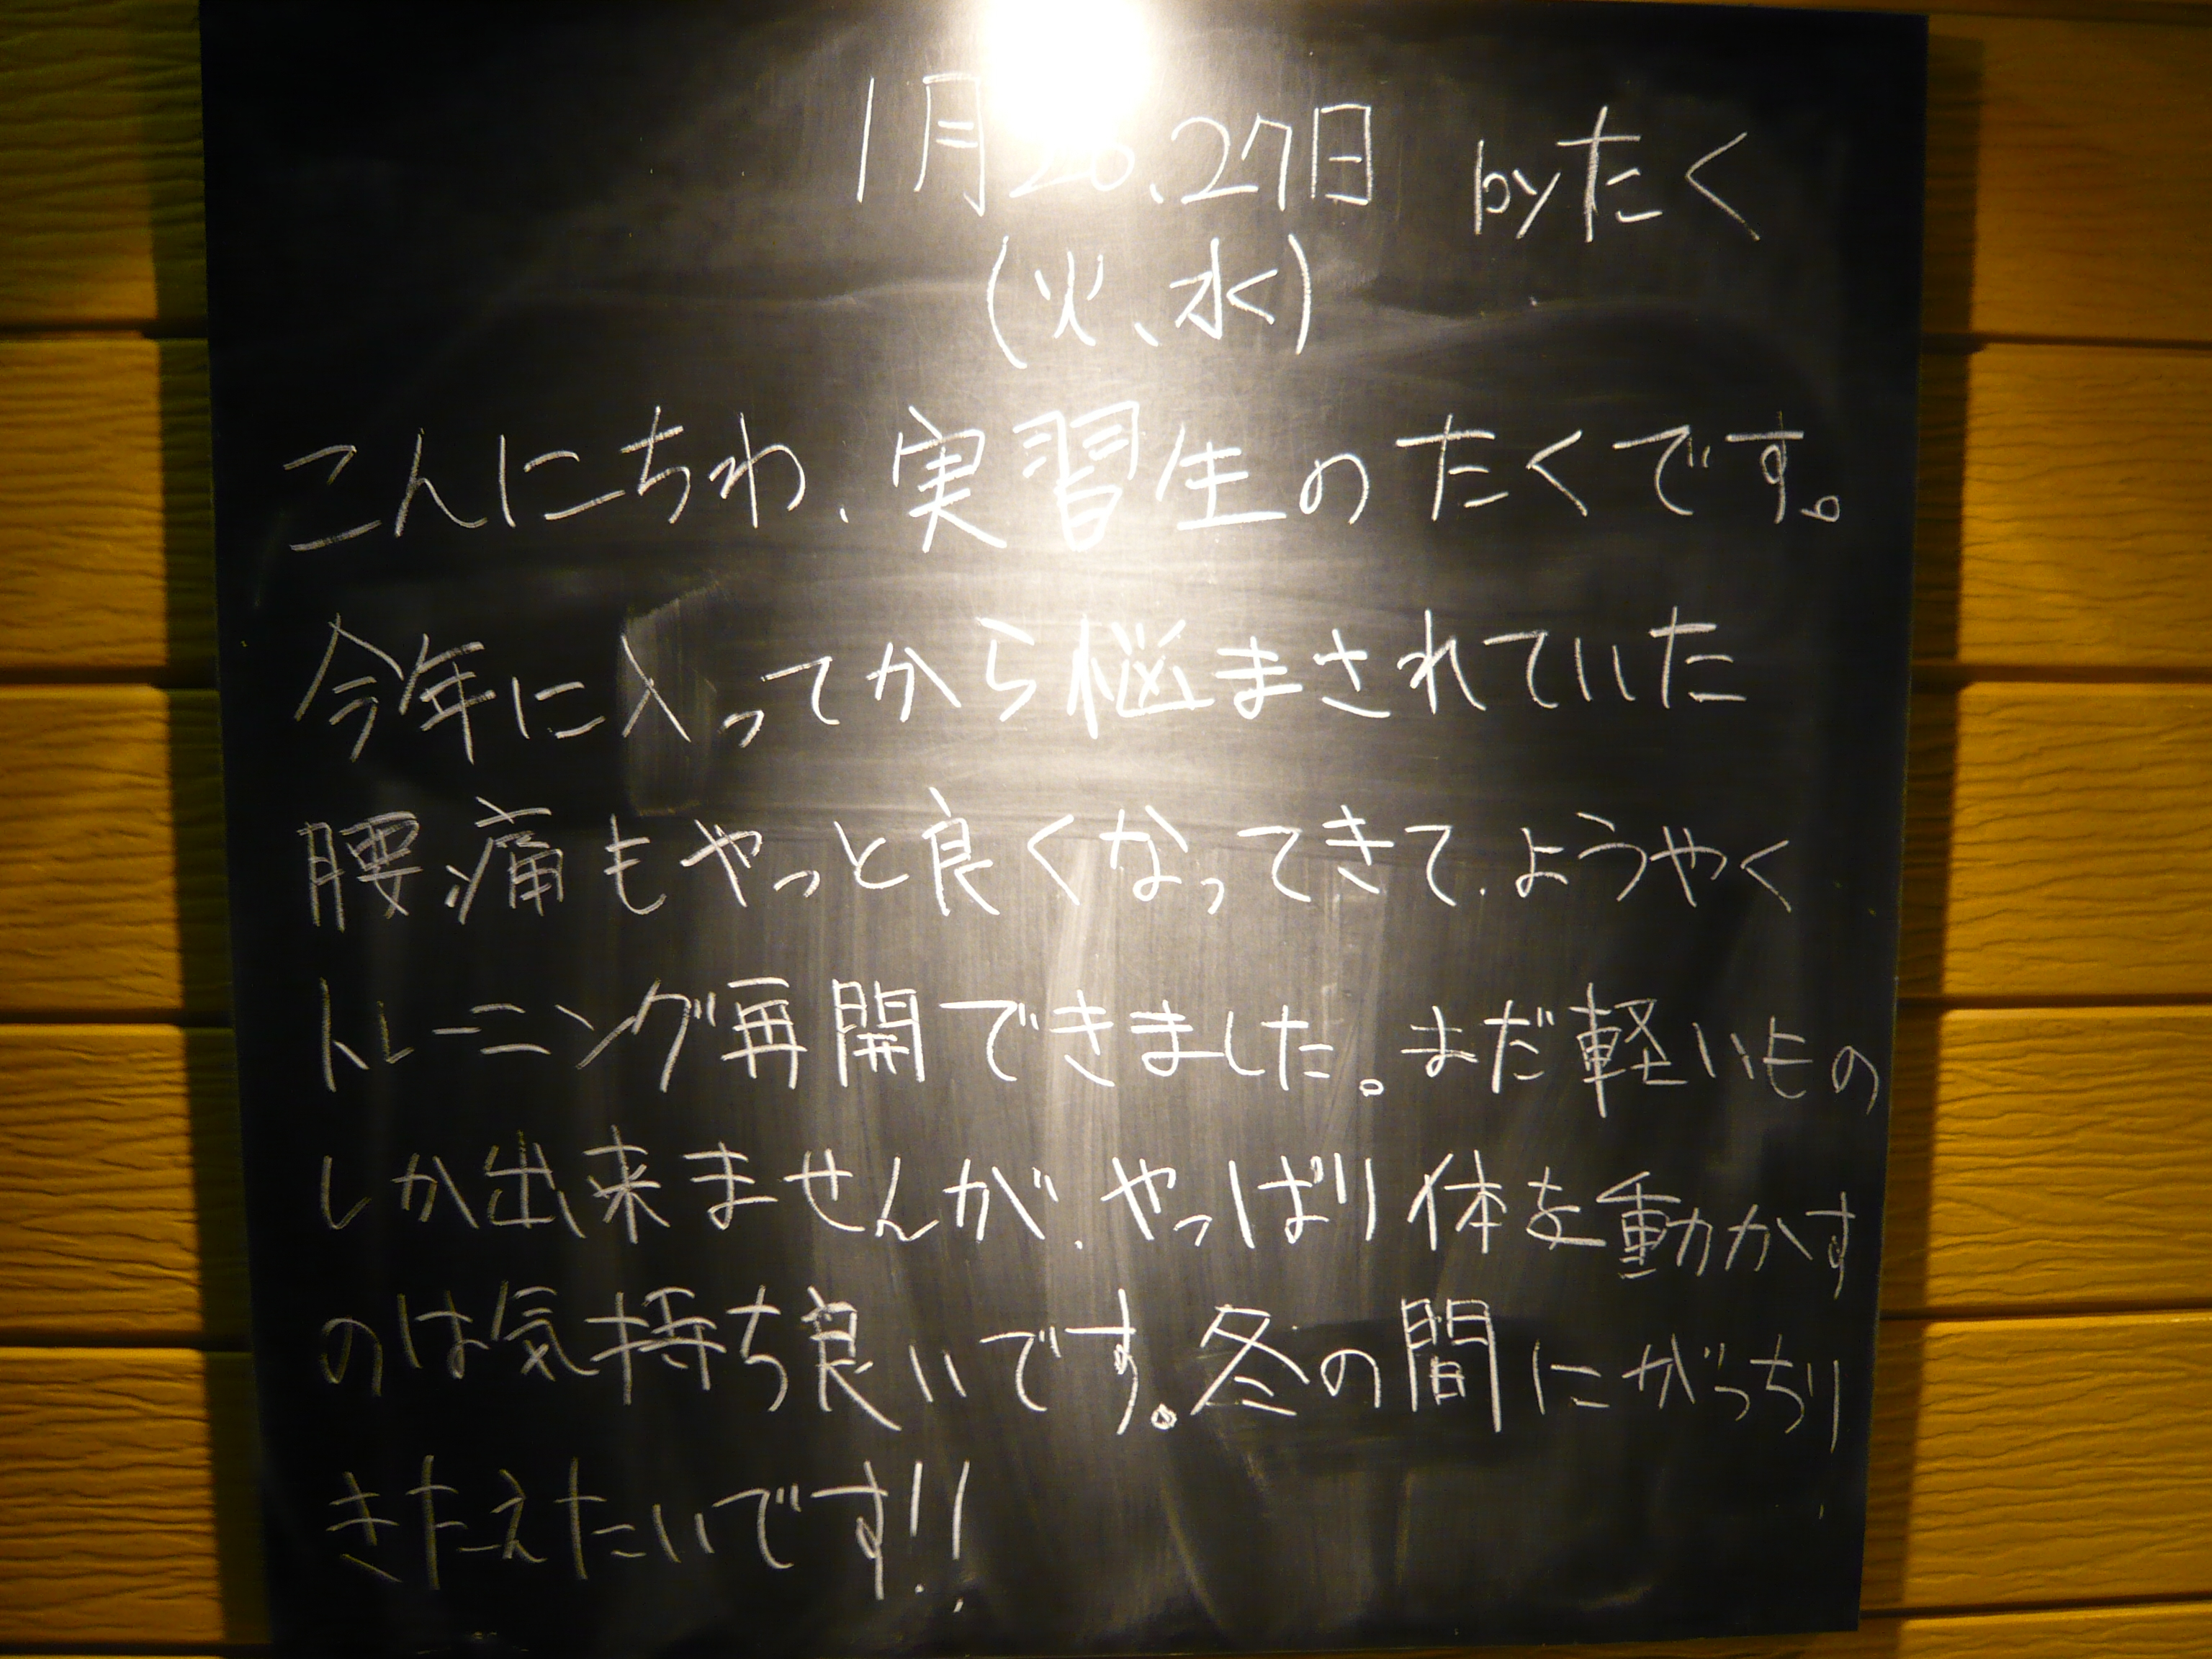 1月26、27日 byたく
(火、水)
こんにちわ、実習生のたくです。
今年に入ってから悩まされていた
腰痛もやっと良くなってきて、ようやく
トレーニング再開できました。まだ軽いもの
しか出来ませんが、やっぱり体を動かす
のは気持ち良いです。冬の間にがっちり
きたえたいです!!